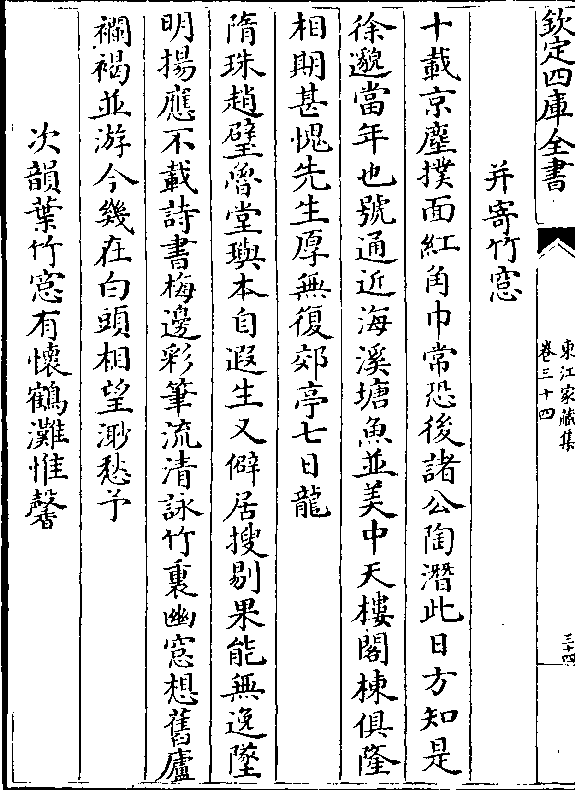 欽定四庫全書
東江家藏集
卷三十四
三十四
并寄竹窓
十載京塵撲面紅角巾常恐後諸公陶潛此日方知是
徐邈當年也號通近海溪塘魚並美中天樓閣棟俱隆
相期甚愧先生厚無復郊亭七日龍
隋珠趙璧魯堂璵本自遐生又僻居搜剔果能無逸墜
明揚應不載詩書梅邊彩筆流清詠竹裏幽窓想舊廬
襴褐並游今幾在白頭相望渺愁予
次韻葉竹窓有懷鶴灘惟馨